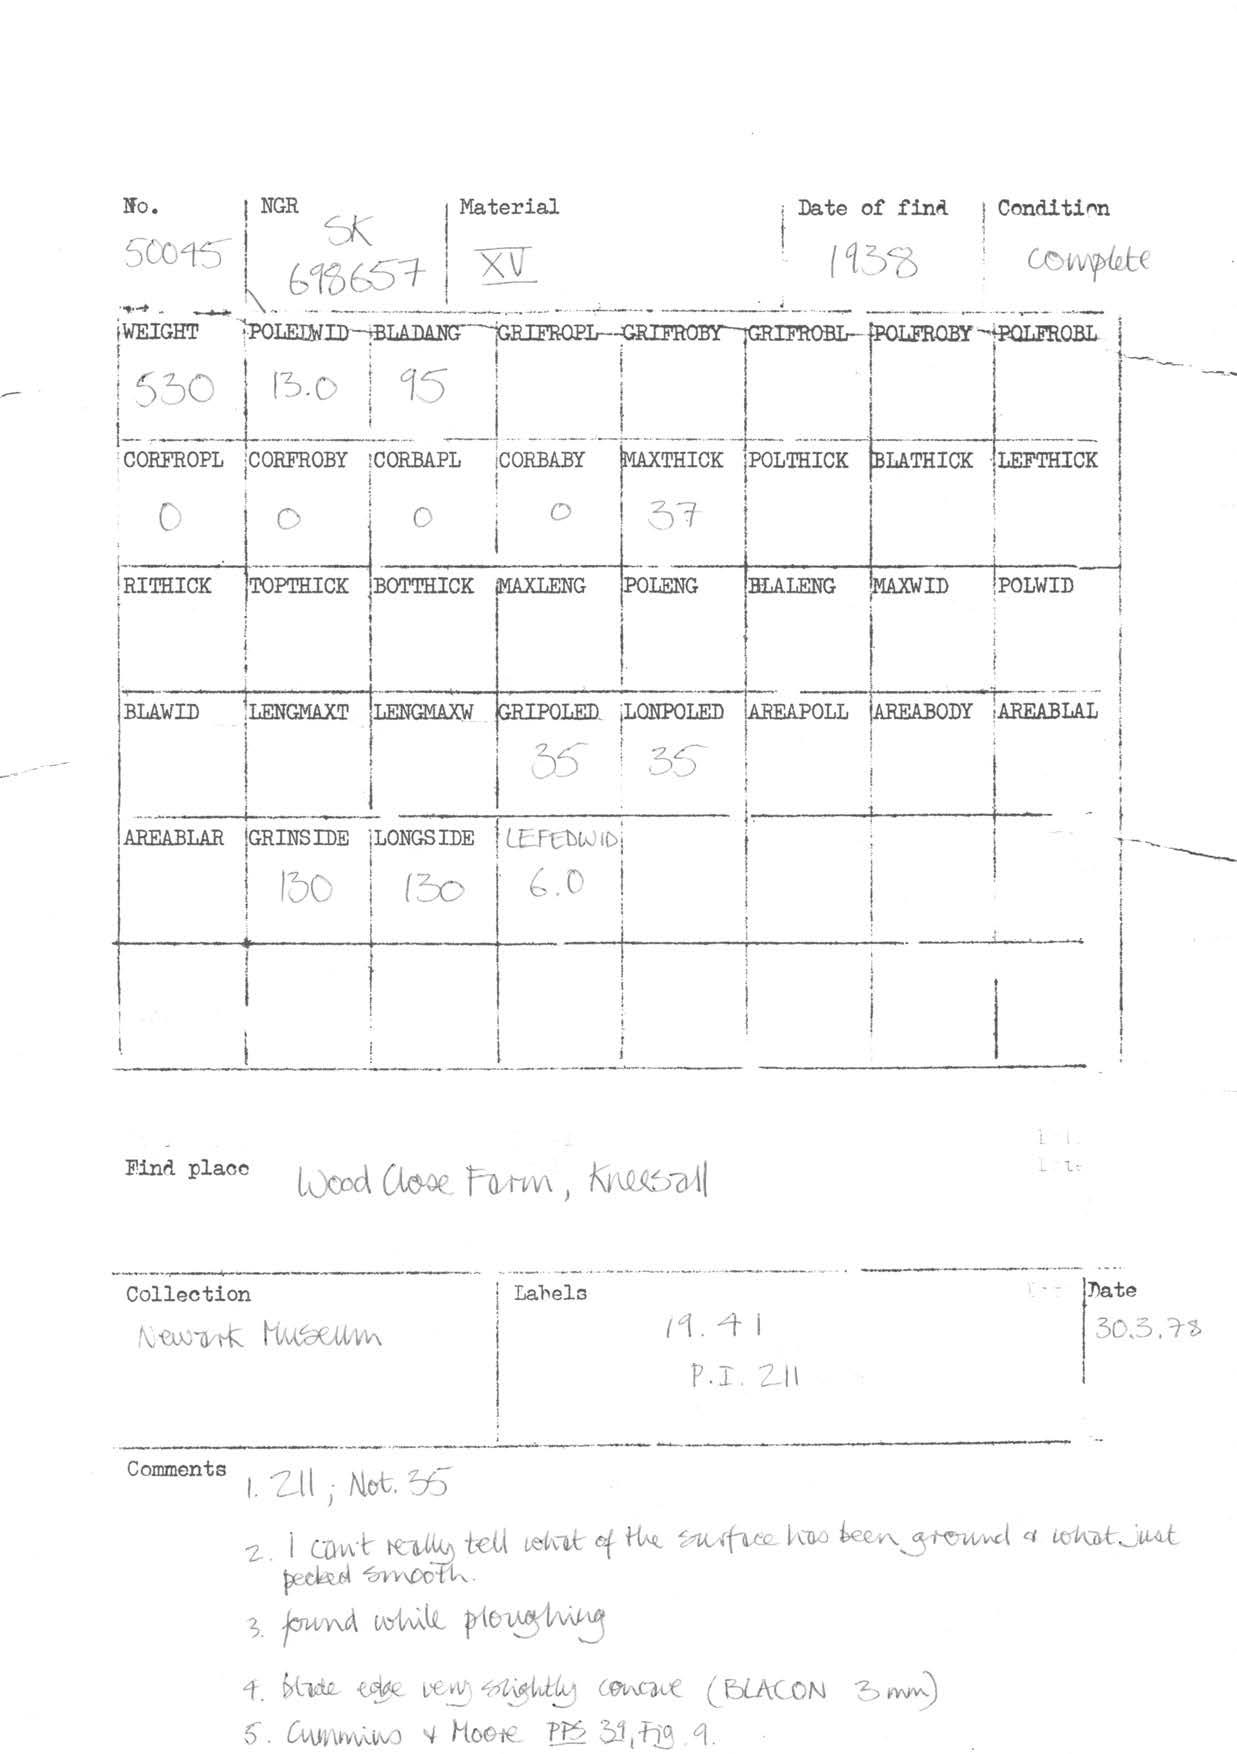 No. NGR Material Date of find Condition
50045 SK 698657 XV 1938 complete
WEIGHT POLEDWID BLADANG GRIFROPL GRIFROBY GRIFROBL POLFROBY POLFROBL
530 13.0 95
CORFROPL CORFROBY CORBAPL CORBABY MAXTHICK POLTHICK BLATHICK LEFTHICK
0 0 0 0 37
RITHICK TOPTHICK BOTTHICK MAXLENG POLENG BLALENG MAXWID POLWID
BLAWID LENGMAXT LENGMAXW GRIPOLED LONPOLED AREAPOLL AREABODY AREABLAL
35 35
AREABLAR GRINSIDE LONGSIDE LEFEDWID
130 130 6.0
Find place Wood Close Farm, Kneesall
Collection Labels Date
Newark Museum 19.41 30.3.78
P.I. 211
Comments 1. 211; Not. 35
2. I can't really tell what of the surface has been ground & what just
pecked smooth.
3. found while ploughing
4. blade edge very slightly concave (BLACON 3mm)
5. Cummins & Moore PPS 39, Fig. 9.